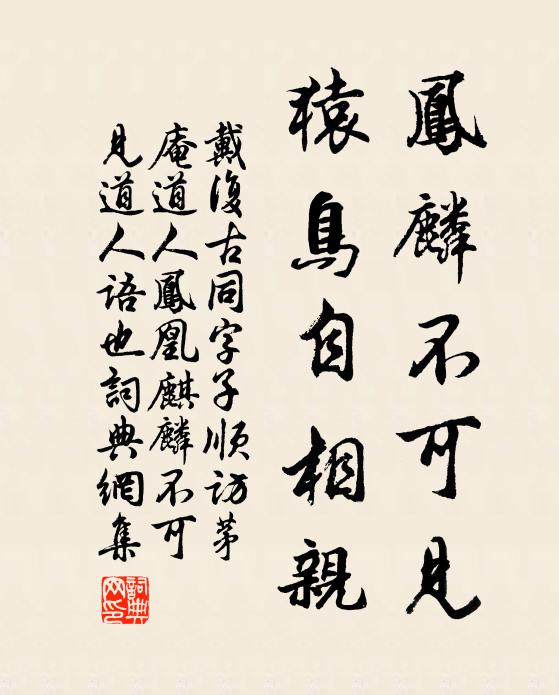 鳳麟不可見
猿鳥自相親
戴復古同字子順訪茅
庵道人鳳凰麒麟不可
見道人語也詞典網集
詞典
网印